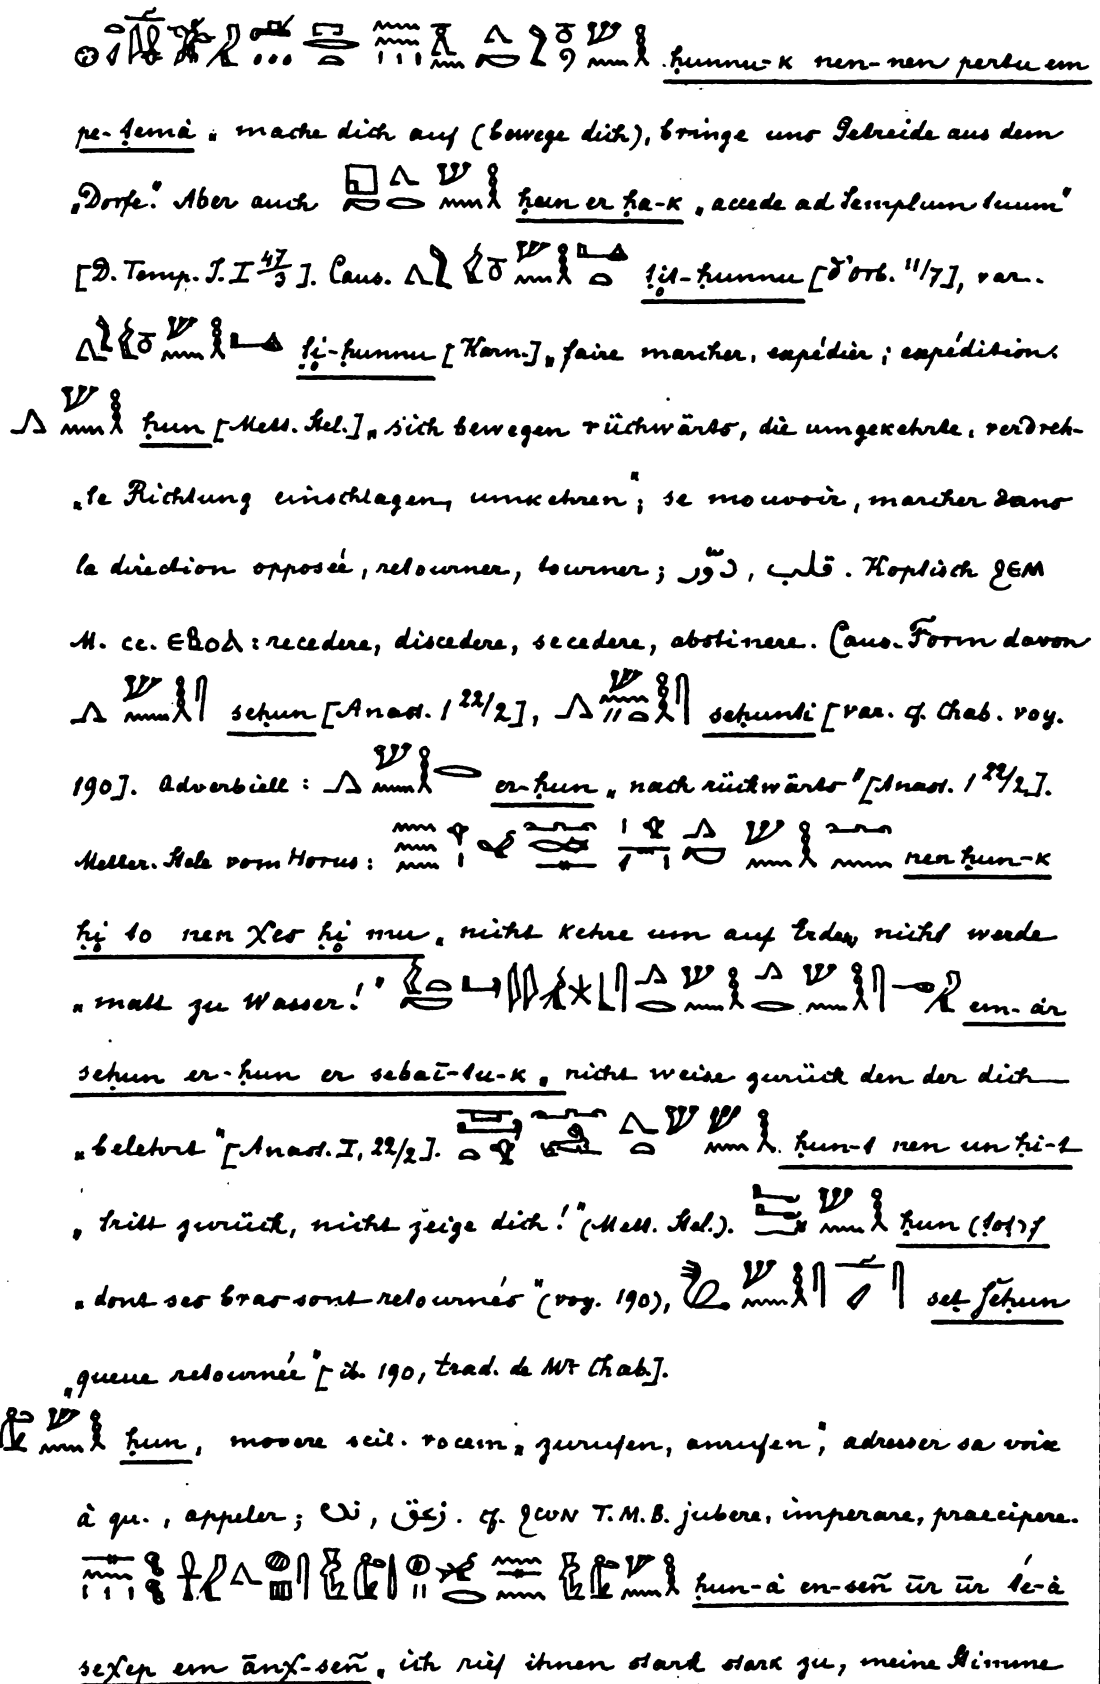 ḥunnu-k nen-nen pertu em
pe-ṭemȧ „mache dich auf (bewege dich), bringe uns Getreide aus dem
„Dorfe“. Aber auch ḥein er ḥa-k „accede ad templum tuum“
[D. Temp. J. I 47/3]. Caus. ṭịt-ḥunnu [d'Orb. 11/7], var.
ṭị-ḥunnu [Karn.] „faire marcher, expédier; expédition.
ḥun [Mett. Stel.] „sich bewegen rückwärts, die umgekehrte, verdreh-
„te Richtung einschlagen, umkehren“; se mouvoir, marcher dans
la direction opposée, retourner, tourner; دوّر, قلب. Koptisch ϩⲉⲙ
M. cc. ⲉⲃⲟⲗ: recedere, discedere, secedere, abstinere. Caus. Form davon
seḥun [Anast. 1 22/2], seḥunti [var. cf. Chab. voy.
190]. Adverbiell: er-ḥun „nach rückwärts“ [Anast. 1 22/2].
Metter. Stele vom Horus: nen ḥun-k
ḥị to nen χes ḥị mu „nicht kehre um auf Erden, nicht werde
„matt zu Wasser!“ em-ȧr
seḥun er-ḥun er sebaī-tu-k „nicht weise zurück den der dich
„belehrt“ [Anast. I, 22/2]. ḥun-t nen un ḥi-t
„tritt zurück, nicht zeige dich!“ (Mett. Stel.). ḥun (tot)f
„dont ses bras sont retournés“ (voy. 190), set seḥun
„queue retournée“ [ib. 190, trad. de Mr Chab.].
ḥun, movere scil. vocem „zurufen, anrufen“, adresser sa voix
à qu., appeler; زعق. cf. ϩⲱⲛ T. M. B. jubere, imperare, praecipere.
ḥun-ȧ en-señ ūr ūr te-ȧ
seχep em ānχ-señ „ich rief ihnen stark stark zu, meine Stimme